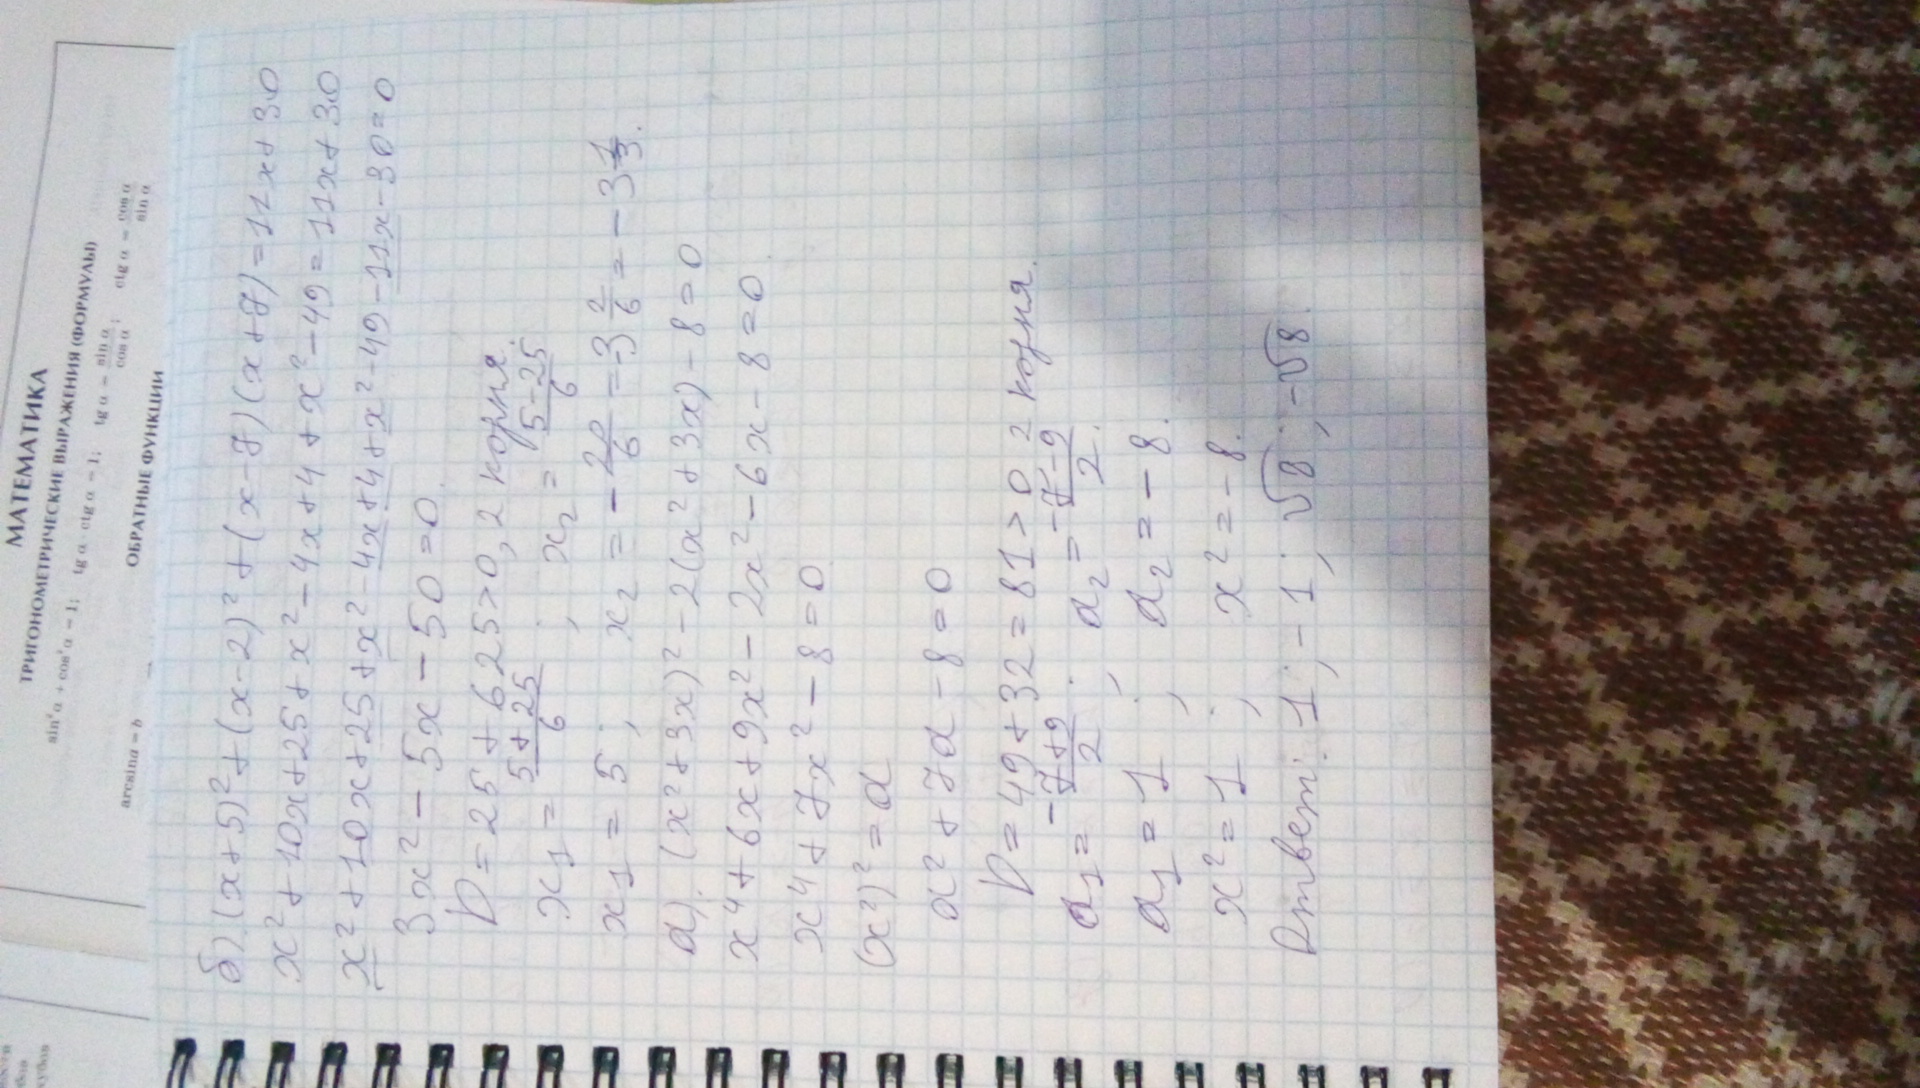 МАТЕМАТИКА
ТРИГОНОМЕТРИЧЕСКИЕ ВЫРАЖЕНИЯ (ФОРМУЛЫ)
sin²α + cos²α = 1; tg α · ctg α = 1; tg α = sin α / cos α; ctg α = cos α / sin α
ОБРАТНЫЕ ФУНКЦИИ
arcsin a = b
б). (x+5)²+(x-2)²+(x-7)(x+7)=11x+30
x²+10x+25+x²-4x+4+x²-49=11x+30
x²+10x+25+x²-4x+4+x²-49-11x-30=0
3x²-5x-50=0
D=25+625>0, 2 корня.
x₁=(5+25)/6; x₂=(5-25)/6
x₁=5; x₂=-20/6=-3 2/6=-3 1/3.
а). (x²+3x)²-2(x²+3x)-8=0
x⁴+6x+9x²-2x²-6x-8=0
x⁴+7x²-8=0
(x²)²=a
a²+7a-8=0
D=49+32=81>0 2 корня.
a₁=(-7+9)/2; a₂=(-7-9)/2.
a₁=1; a₂=-8.
x²=1; x²=-8.
Ответ: 1; -1; √8; -√8.